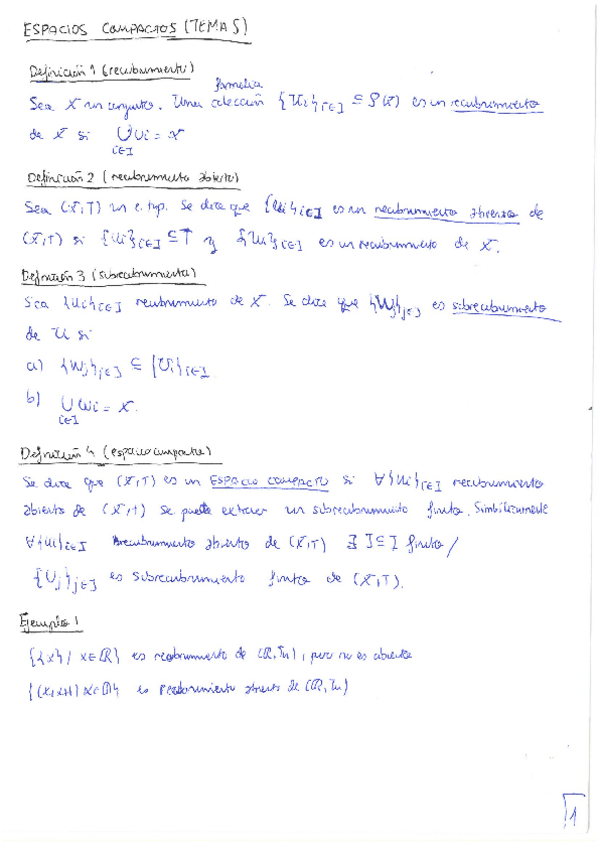 ESPACIOS COMPACTOS (TEMA 5)
Definición 1 (recubrimiento)
familia
Sea X un conjunto. Una colección {Ui}i∈I ⊆ P(X) es un recubrimiento
de X si ⋃ Ui = X
i∈I
Definición 2 (recubrimiento abierto)
Sea (X,T) un e. top. Se dice que {Ui}i∈I es un recubrimiento abierto de
(X,T) si {Ui}i∈I ⊆ T y {Ui}i∈I es un recubrimiento de X.
Definición 3 (subrecubrimiento)
Sea {Ui}i∈I recubrimiento de X. Se dice que {Wj}j∈J es subrecubrimiento
de U si
a) {Wj}j∈J ⊆ {Ui}i∈I
b) ⋃ Wi = X.
i∈I
Definición 4 (espacio compacto)
Se dice que (X,T) es un ESPACIO COMPACTO si ∀{Ui}i∈I recubrimiento
abierto de (X,T) se puede extraer un subrecubrimiento finito. Simbólicamente
∀{Ui}i∈I recubrimiento abierto de (X,T) ∃ J⊆I finito /
{Uj}j∈J es subrecubrimiento finito de (X,T).
Ejemplo 1
{{x} / x∈ℝ} es recubrimiento de (ℝ,Tu), pero no es abierto
{(x,x+1) x∈ℝ} es recubrimiento abierto de (ℝ,Tu)
1